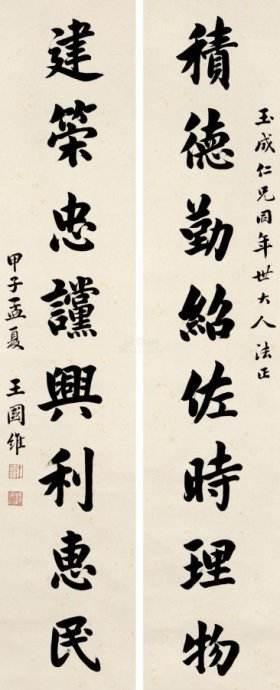 玉成仁兄同年世大人法正
積德勤紹佐時理物
建策忠讜興利惠民
甲子孟夏 王國維